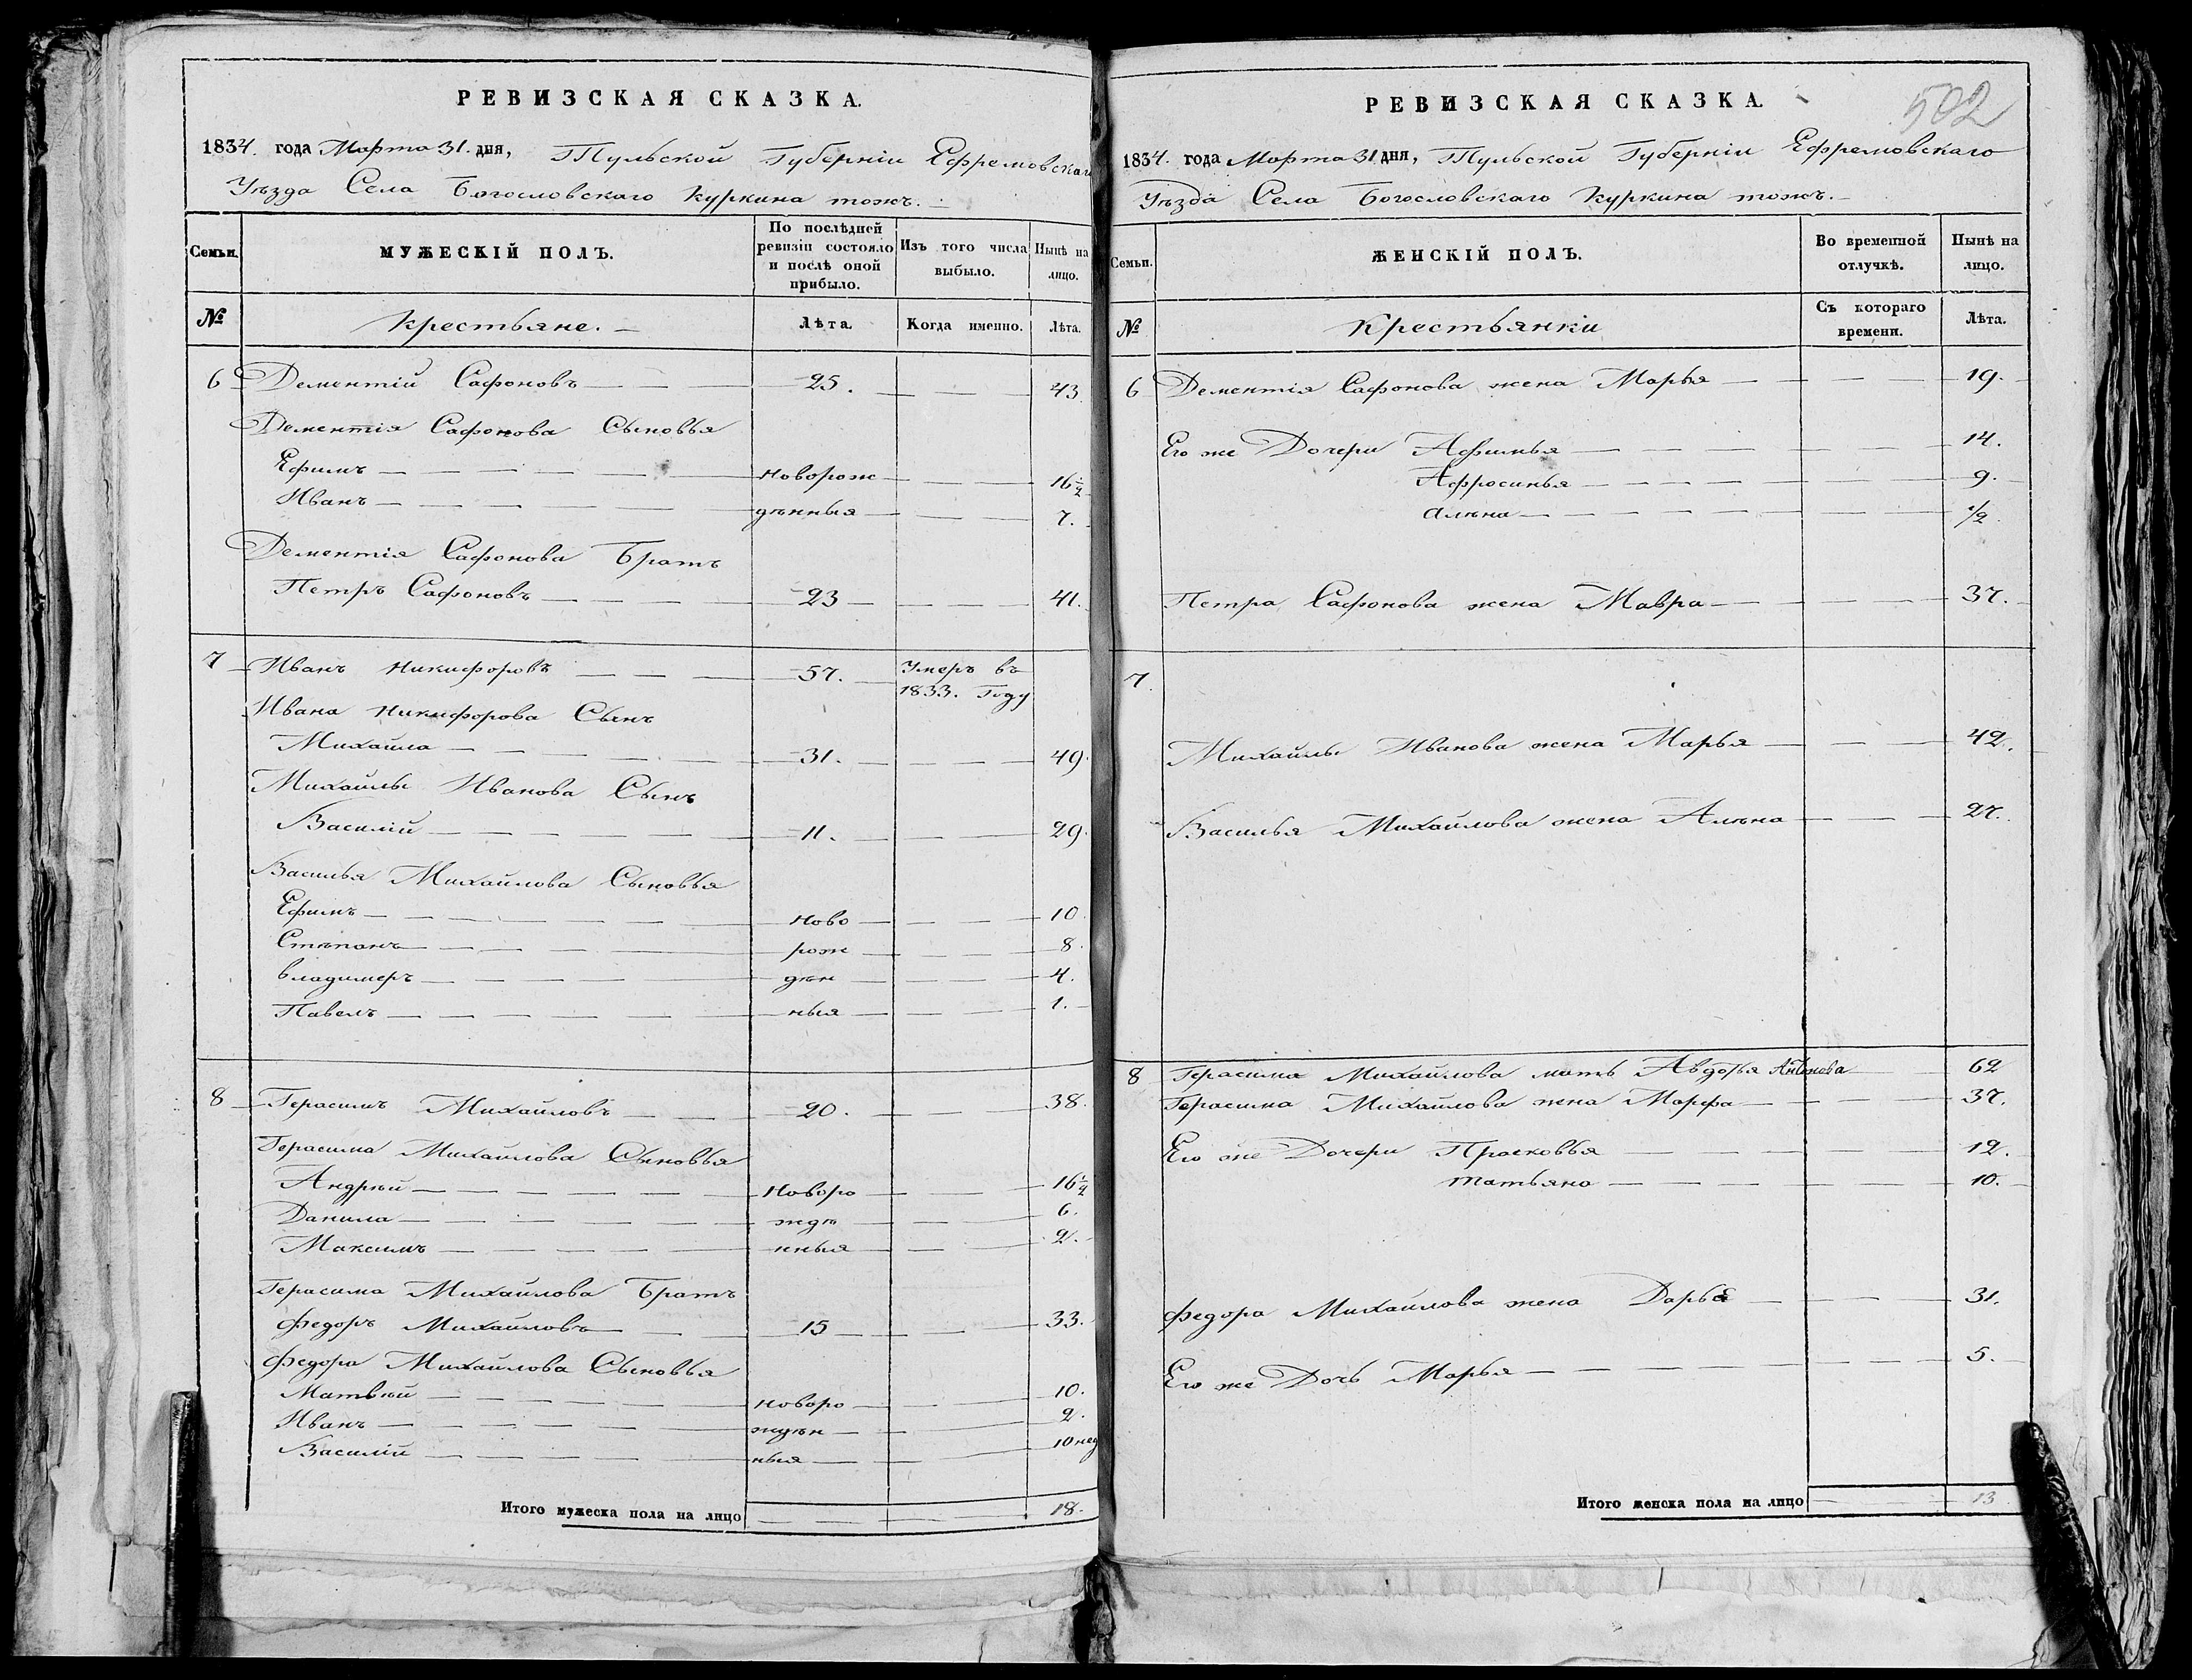 РЕВИЗСКАЯ СКАЗКА.
1834. года Марта 31. дня, Тульской Губерніи Ефремовскаго
Уѣзда Села Богословскаго Куркина тожъ.
Семьи. МУЖЕСКІЙ ПОЛЪ. По послѣдней ревизіи состояло и послѣ оной прибыло. Изъ того числа выбыло. Нынѣ на лицо.
№ Крестьяне. Лѣта. Когда именно. Лѣта.
6 Дементій Сафоновъ 25. 43.
Дементія Сафонова Сыновья
Ефимъ новорож 16 1/2
Иванъ дѣнныя 7.
Дементія Сафонова Братъ
Петръ Сафоновъ 23 41.
7 Иванъ Никифоровъ 57. Умеръ въ
1833. Году
Ивана Никифорова Сынъ
Михайла 31. 49.
Михайлы Иванова Сынъ
Василій 11. 29.
Василья Михайлова Сыновья
Ефимъ ново 10.
Стѣпанъ рож 8.
владимеръ дѣн 4.
Павелъ ныя 1.
8 Герасимъ Михайловъ 20. 38.
Герасима Михайлова Сыновья
Андрѣй Новоро 16 1/2
Данила ждѣ 6.
Максимъ нныя 2.
Герасима Михайлова Братъ
Федоръ Михайловъ 15 33.
Федора Михайлова Сыновья
Матвѣй новоро 10.
Иванъ ждѣн 2.
Василій ныя 10 нед
Итого мужеска пола на лицо 18.
502
РЕВИЗСКАЯ СКАЗКА.
1834. года Марта 31 дня, Тульской Губерніи Ефремовскаго
Уѣзда Села Богословскаго Куркина тожъ.
Семьи. ЖЕНСКІЙ ПОЛЪ. Во временной отлучкѣ. Нынѣ на лицо.
№ Крестьянки Съ котораго времени. Лѣта.
6 Дементія Сафонова жена Марья 19.
Его же Дочери Афимья 14.
Афросинья 9.
Алѣна 1/2.
Петра Сафонова жена Мавра 37.
7.
Михайлы Иванова жена Марья 42.
Василья Михайлова жена Алѣна 27.
8 Герасима Михайлова мать Авдотья Антонова 62
Герасима Михайлова жена Марфа 37.
Его же Дочери Прасковья 12.
татьяна 10.
Федора Михайлова жена Дарья 31.
Его же Дочь Марья 5.
Итого женска пола на лицо 13.